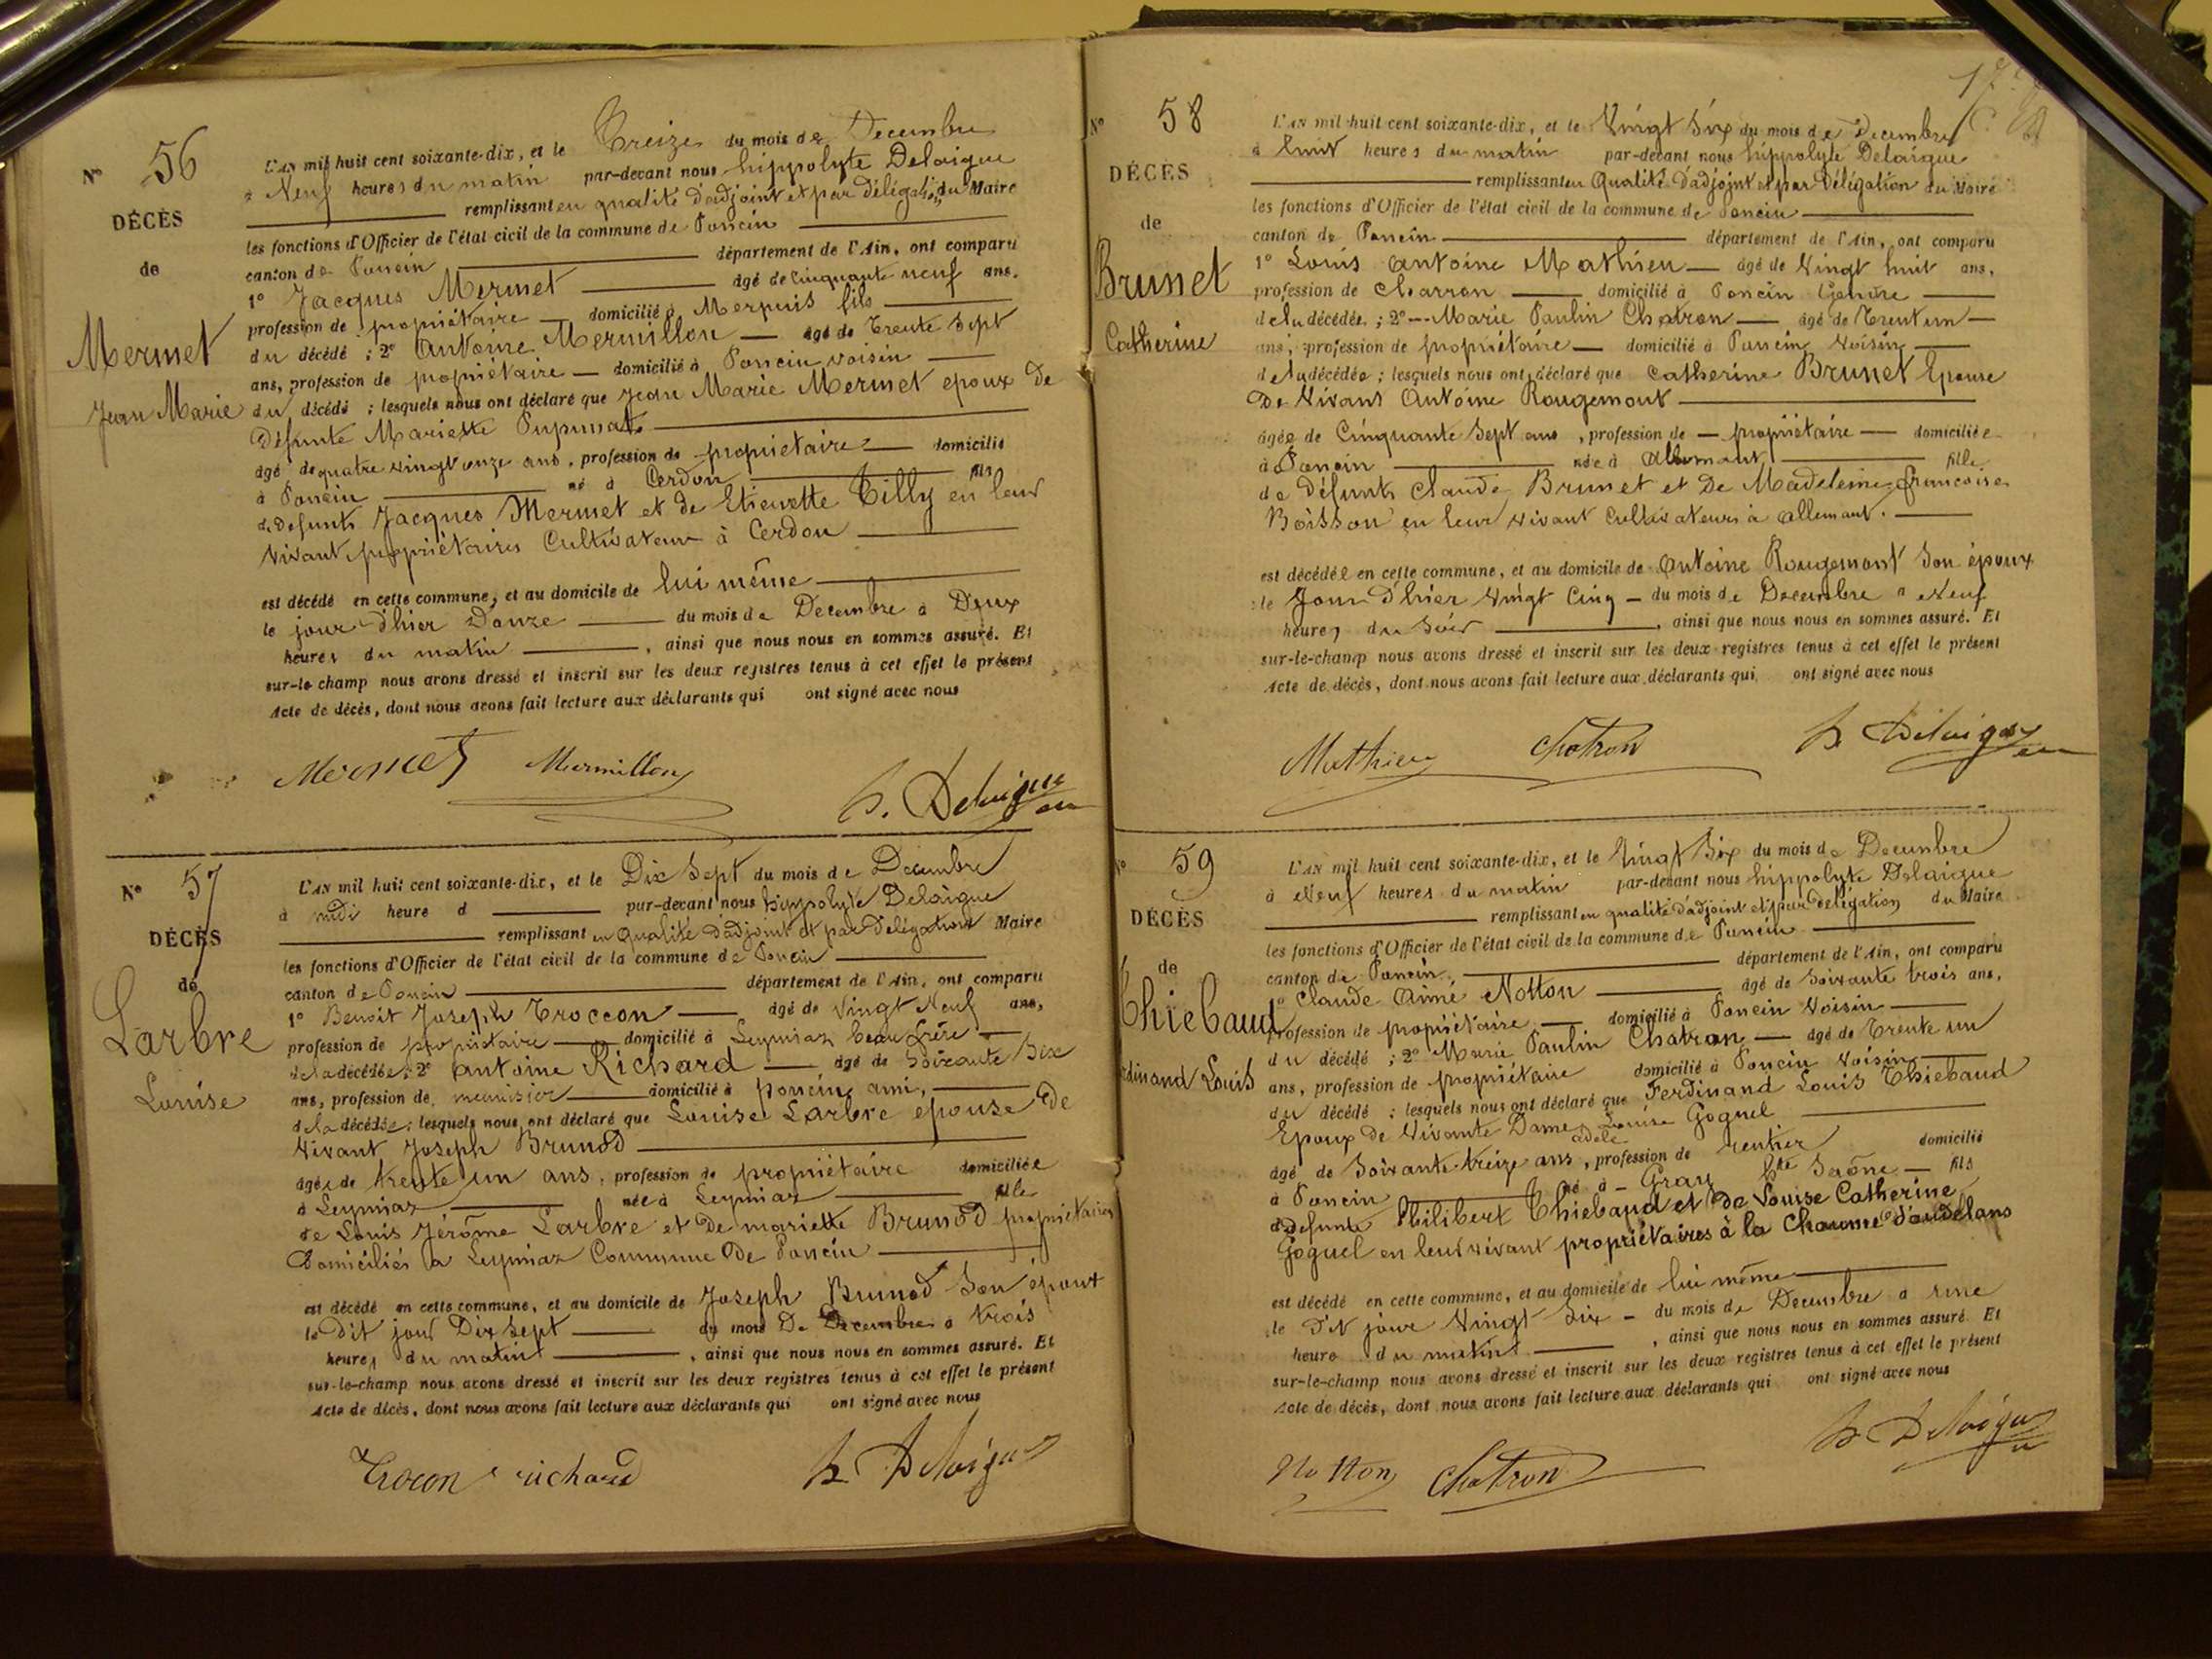 N° 56
DÉCÈS
de
Mermet
Jean Marie
L'AN mil huit cent soixante-dix, et le Treize du mois de Decembre
à Neuf heures du matin par-devant nous hippolyte Delaigue
remplissant en qualité d'adjoint et par délégation du Maire
les fonctions d'Officier de l'état civil de la commune de Poncin
canton de Poncin département de l'Ain, ont comparu
1° Jacques Mermet âgé de Cinquante neuf ans,
profession de propriétaire domicilié à Merpuis fils
du décédé ; 2° Antoine Mermillon âgé de Trente Sept
ans, profession de propriétaire domicilié à Poncin voisin
du décédé ; lesquels nous ont déclaré que Jean Marie Mermet epoux de
Défunte Mariette
âgé de quatre vingt onze ans, profession de propriétaire domicilié
à Poncin né à Cerdon fils
de Defunts Jacques Mermet et de Etiennette Tilly en leur
vivant propriétaires Cultivateurs à Cerdon
est décédé en cette commune, et au domicile de lui même
le jour d'hier Douze du mois de Decembre à Deux
heures du matin , ainsi que nous nous en sommes assuré. Et
sur-le champ nous avons dressé et inscrit sur les deux registres tenus à cet effet le présent
Acte de décès, dont nous avons fait lecture aux déclarants qui ont signé avec nous
Mermet Mermillon h. Delaigue
N° 57
DÉCÈS
de
Larbre
Louise
L'AN mil huit cent soixante-dix, et le Dix Sept du mois de Decembre
à midi heure d par-devant nous hippolyte Delaigue
remplissant en qualité d'adjoint et par Délégation Maire
les fonctions d'Officier de l'état civil de la commune de Poncin
canton de Poncin département de l'Ain, ont comparu
1° Benoit Joseph Troccon âgé de Vingt Neuf ans,
profession de propriétaire domicilié à Leymiaz beau frére
de la décédée ; 2° Antoine Richard âgé de Soixante Six
ans, profession de menuisier domicilié à Poncin ami,
de la décédée ; lesquels nous ont déclaré que Louise Larbre epouse de
vivant Joseph Brunod
âgée de trente un ans, profession de propriétaire domiciliée
à Leymiaz née à Leymiaz fille
de Louis Jérôme Larbre et De mariette Brunod propriétaires
Domiciliés à Leymiaz Commune De Poncin
est décédé en cette commune, et au domicile de Joseph Brunod Son époux
le Dit jour Dix Sept du mois De Decembre à trois
heures du matin , ainsi que nous nous en sommes assuré. Et
sur-le-champ nous avons dressé et inscrit sur les deux registres tenus à cet effet le présent
Acte de décès, dont nous avons fait lecture aux déclarants qui ont signé avec nous
Trocon richard h Delaigue
N° 58
DÉCÈS
de
Brunet
Catherine
L'AN mil huit cent soixante-dix, et le Vingt Six du mois de Decembre
à huit heures du matin par-devant nous hippolyte Delaigue
remplissant en Qualité d'adjoint et par Délégation du Maire
les fonctions d'Officier de l'état civil de la commune de Poncin
canton de Poncin département de l'Ain, ont comparu
1° Louis Antoine Mathieu âgé de Vingt huit ans,
profession de Charron domicilié à Poncin Gendre
de la décédée ; 2° Marie Paulin Chatron âgé de Trent un
ans, profession de propriétaire domicilié à Poncin Voisin
de la décédée ; lesquels nous ont déclaré que Catherine Brunet Epouse
De Vivant Antoine Rougemont
âgée de Cinquante Sept ans, profession de propriétaire domiciliée
à Poncin née à Allemant fille
de Défunts Claude Brunet et De Madeleine francoise
Boisson en leur vivant Cultivateurs à Allemant.
est décédée en cette commune, et au domicile de Antoine Rougemont Son époux
le Jour d'hier Vingt Cinq du mois de Decembre à Neuf
heures du Soir , ainsi que nous nous en sommes assuré. Et
sur-le-champ nous avons dressé et inscrit sur les deux registres tenus à cet effet le présent
Acte de décès, dont nous avons fait lecture aux déclarants qui ont signé avec nous
Mathieu Chatron h Delaigue
59
DÉCÈS
de
Thiebaud
dinand Louis
L'AN mil huit cent soixante-dix, et le Vingt Six du mois de Decembre
à Neuf heures du matin par-devant nous hippolyte Delaigue
remplissant en qualité d'adjoint et par délégation du Maire
les fonctions d'Officier de l'état civil de la commune de Poncin
canton de Poncin département de l'Ain, ont comparu
1° Claude Aimé Notton âgé de Soixante trois ans,
profession de propriétaire domicilié à Poncin Voisin
du décédé ; 2° Marie Paulin Chatron âgé de Trente un
ans, profession de propriétaire domicilié à Poncin Voisin
du décédé ; lesquels nous ont déclaré que Ferdinand Louis Thiebaud
Epoux de Vivante Dame Louise Goguel
adèle
âgé de Soixante treize ans, profession de rentier domicilié
à Poncin né à Gray hte Saône fils
de Defunts Philibert Thiebaud et de Louise Catherine
Goguel en leur vivant propriétaires à la Chaume d'audelans
est décédé en cette commune, et au domicile de lui même
le Dit jour Vingt Six du mois de Decembre à une
heure du matin , ainsi que nous nous en sommes assuré. Et
sur-le-champ nous avons dressé et inscrit sur les deux registres tenus à cet effet le présent
Acte de décès, dont nous avons fait lecture aux déclarants qui ont signé avec nous
Notton Chatron h Delaigue